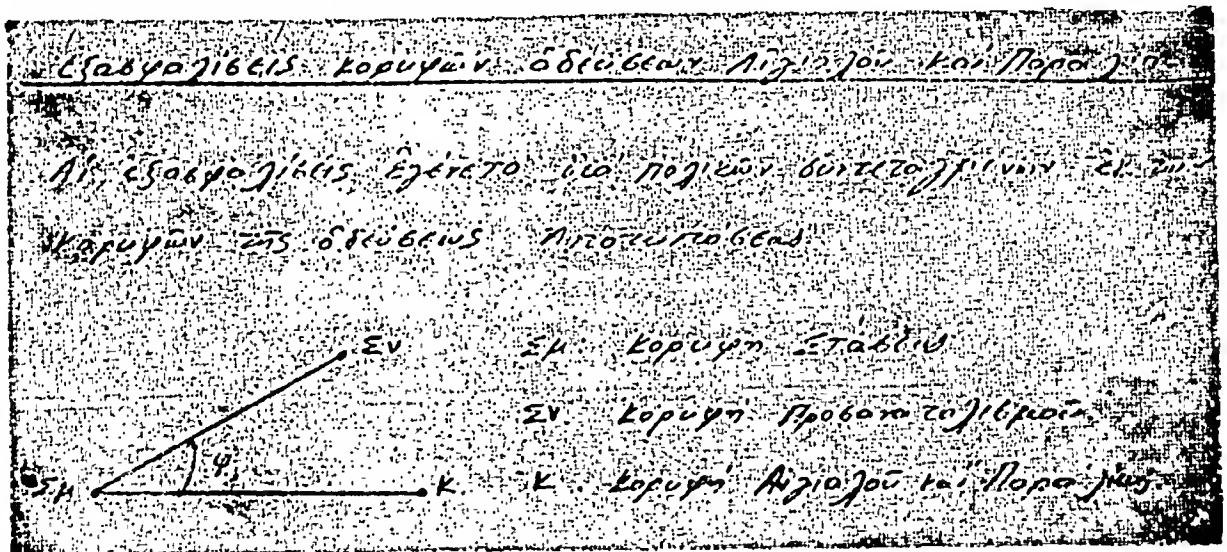 Ἐξασφαλίσεις κορυφῶν ὁδεύσεων Αἰγιαλοῦ καὶ Παραλίας
Αἱ ἐξασφαλίσεις ἐγένετο διὰ πολικῶν συντεταγμένων ἐκ τῶν
Κορυφῶν τῆς ὁδεύσεως Ἀποτυπώσεως
Σν Σμ Κορυφὴ Στάσεως
Σν Κορυφὴ Προσανατολισμοῦ
φ
Σμ Κ Κ Κορυφὴ Αἰγιαλοῦ καὶ Παραλίας